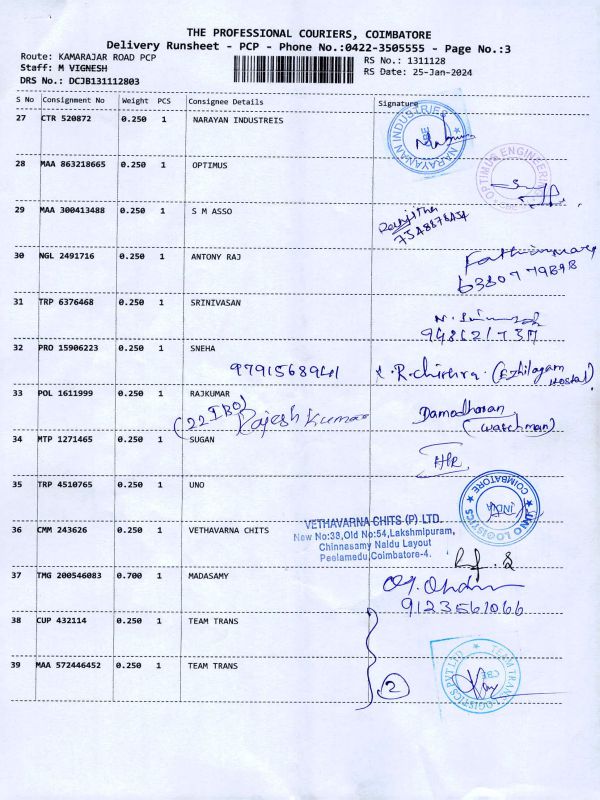 THE PROFESSIONAL COURIERS, COIMBATORE
Delivery Runsheet - PCP - Phone No.:0422-3505555 - Page No.:3
Route: KAMARAJAR ROAD PCP
Staff: M VIGNESH
DRS No.: DCJB131112803
RS No.: 1311128
RS Date: 25-Jan-2024
S No Consignment No Weight PCS Consignee Details Signature
27 CTR 520872 0.250 1 NARAYAN INDUSTREIS
NARAYANAN INDUSTRIES
28 MAA 863218665 0.250 1 OPTIMUS
OPTIMUS ENGINEERING
29 MAA 300413488 0.250 1 S M ASSO
Ranjitha
30 NGL 2491716 0.250 1 ANTONY RAJ
31 TRP 6376468 0.250 1 SRINIVASAN
32 PRO 15906223 0.250 1 SNEHA
9791568941 R. Chithra. (Ezhilagam Hostel)
33 POL 1611999 0.250 1 RAJKUMAR
(22 IBO) Rajesh Kumar Damodharan
(watchman)
34 MTP 1271465 0.250 1 SUGAN
35 TRP 4510765 0.250 1 UNO
UNO LOGISTICS COIMBATORE INDIA
36 CMM 243626 0.250 1 VETHAVARNA CHITS
VETHAVARNA CHITS (P) LTD.
New No:33,Old No:54,Lakshmipuram,
Chinnasamy Naidu Layout
Peelamedu,Coimbatore-4.
37 TMG 200546083 0.700 1 MADASAMY
9123561066
38 CUP 432114 0.250 1 TEAM TRANS
39 MAA 572446452 0.250 1 TEAM TRANS
2
TEAM TRANS LOGISTICS PVT LTD CBE